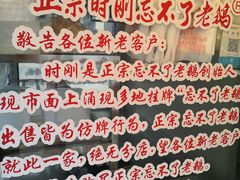 正宗时刚忘不了老鹅
敬告各位新老客户:
时刚是正宗忘不了老鹅创始人
现市面上涌现多地挂牌“忘不了老鹅
出售皆为仿牌行为,正宗忘不了老鹅
就此一家,绝无分店,望各位新老客
忘不了老鹅。